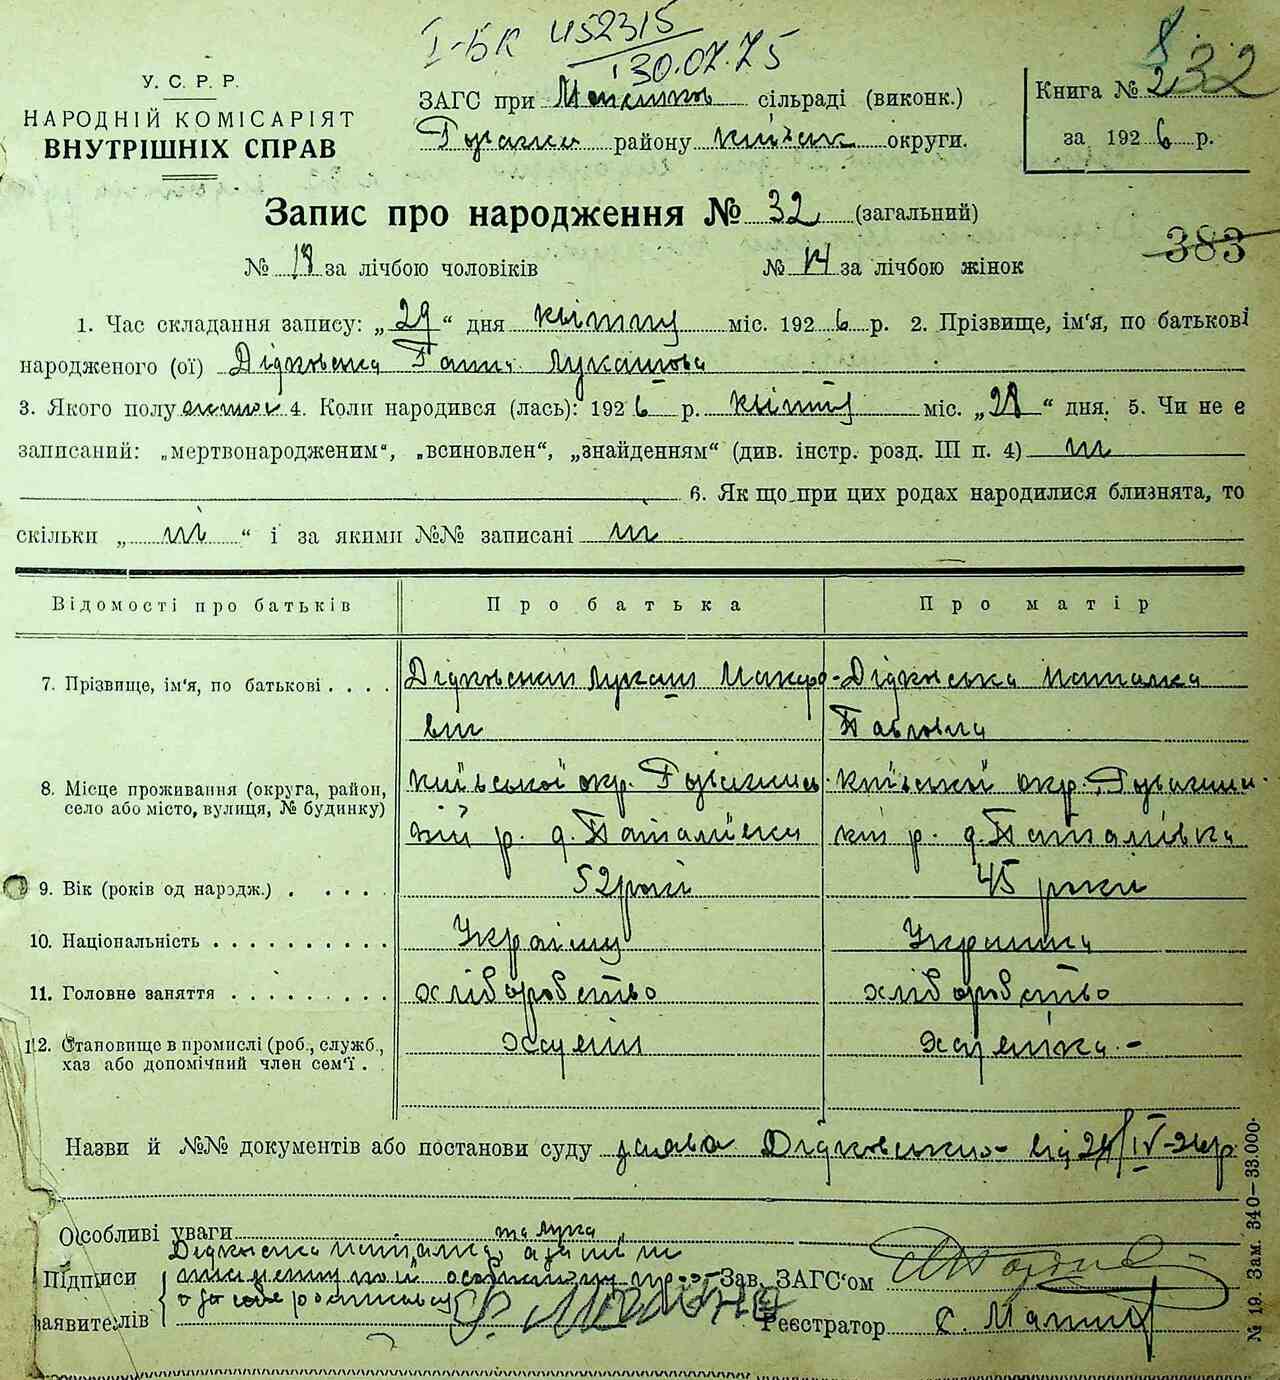 I-БК 452315
30.07.75
8
232
У. С. Р. Р.
НАРОДНІЙ КОМІСАРІЯТ
ВНУТРІШНІХ СПРАВ
ЗАГС при сільраді (виконк.)
району округи.
Книга № 2
за 1926 р.
Запис про народження № 32 (загальний)
383
№ 18 за лічбою чоловіків № 14 за лічбою жінок
1. Час складання запису: „29“ дня квітня міс. 1926 р. 2. Прізвище, ім'я, по батькові
народженого (ої) Дідківська Ганна Лукашова
3. Якого полу 4. Коли народився (лась): 1926 р. квітня міс. „28“ дня. 5. Чи не є
записаний: „мертвонародженим“, „всиновлен“, „знайденням“ (див. інстр. розд. III п. 4) ні
6. Як що при цих родах народилися близнята, то
скільки „ні“ і за якими №№ записані ні
Відомості про батьків Про батька Про матір
7. Прізвище, ім'я, по батькові Дідківський Лукаш Макаро- Дідківська Наталка
вич Павловна
8. Місце проживання (округа, район, село або місто, вулиця, № будинку) київської окр. київської окр.
р. д. р. д.
9. Вік (років од народж.) 52 роки 45 роки
10. Національність Українец Українка
11. Головне заняття хліборобство хліборобство
12. Становище в промислі (роб., служб., хаз або допомічний член сем'ї. хазяїн хазяйка -
Назви й №№ документів або постанови суду заява Дідківського від IV-26 р.
Особливі уваги
Дідківська Наталка
Підписи
заявителів
Зав. ЗАГС'ом
Реєстратор
№ 19. Зам. 340—33.000.